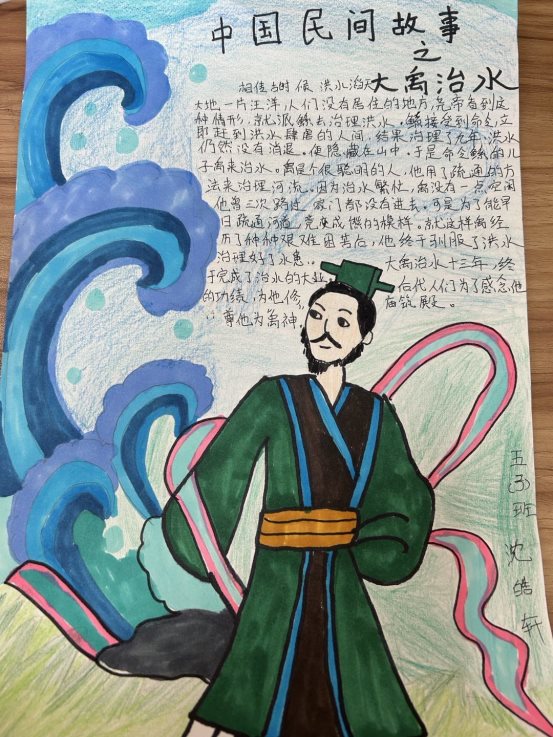 中国民间故事
之
大禹治水
相传古时候,洪水滔天
大地一片汪洋,人们没有居住的地方,尧帝看到这
种情形,就派鲧去治理洪水。鲧接受到命令,立
即赶到洪水肆虐的人间,结果治理了九年,洪水
仍然没有消退。便隐藏在山中。于是命令鲧的儿
子禹来治水。禹是个很聪明的人,他用了疏通的方
法来治理河流。因为治水繁忙,禹没有一点空闲
他曾三次路过 家门都没有进去。可是为了能早
日疏通河道,竟变成熊的模样。就这样禹经
历了种种艰难困苦后,他终于制服了洪水
治理好了水患, 大禹治水十三年,终
于完成了治水的大业 后代人们为了感念他
的功绩,为他修 庙筑殿。
尊他为禹神
五 班 沈皓轩